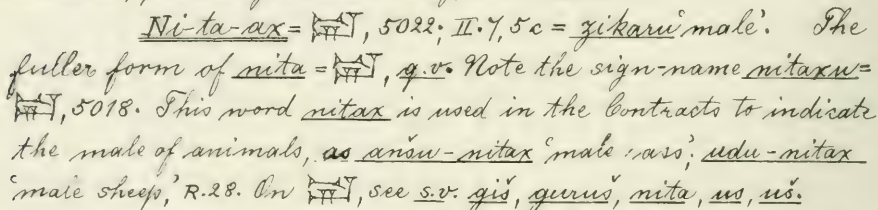 Ni-ta-ax = 𒍑, 5022; II. 7, 5 c = zikaru 'male'. The
fuller form of nita = 𒍑, q.v. Note the sign-name nitaxu =
𒍑, 5018. This word nitax is used in the Contracts to indicate
the male of animals, as anšu-nitax 'male ass'; udu-nitax
'male sheep,' R. 28. On 𒍑, see s.v. giš, guruš, nita, us, uš.